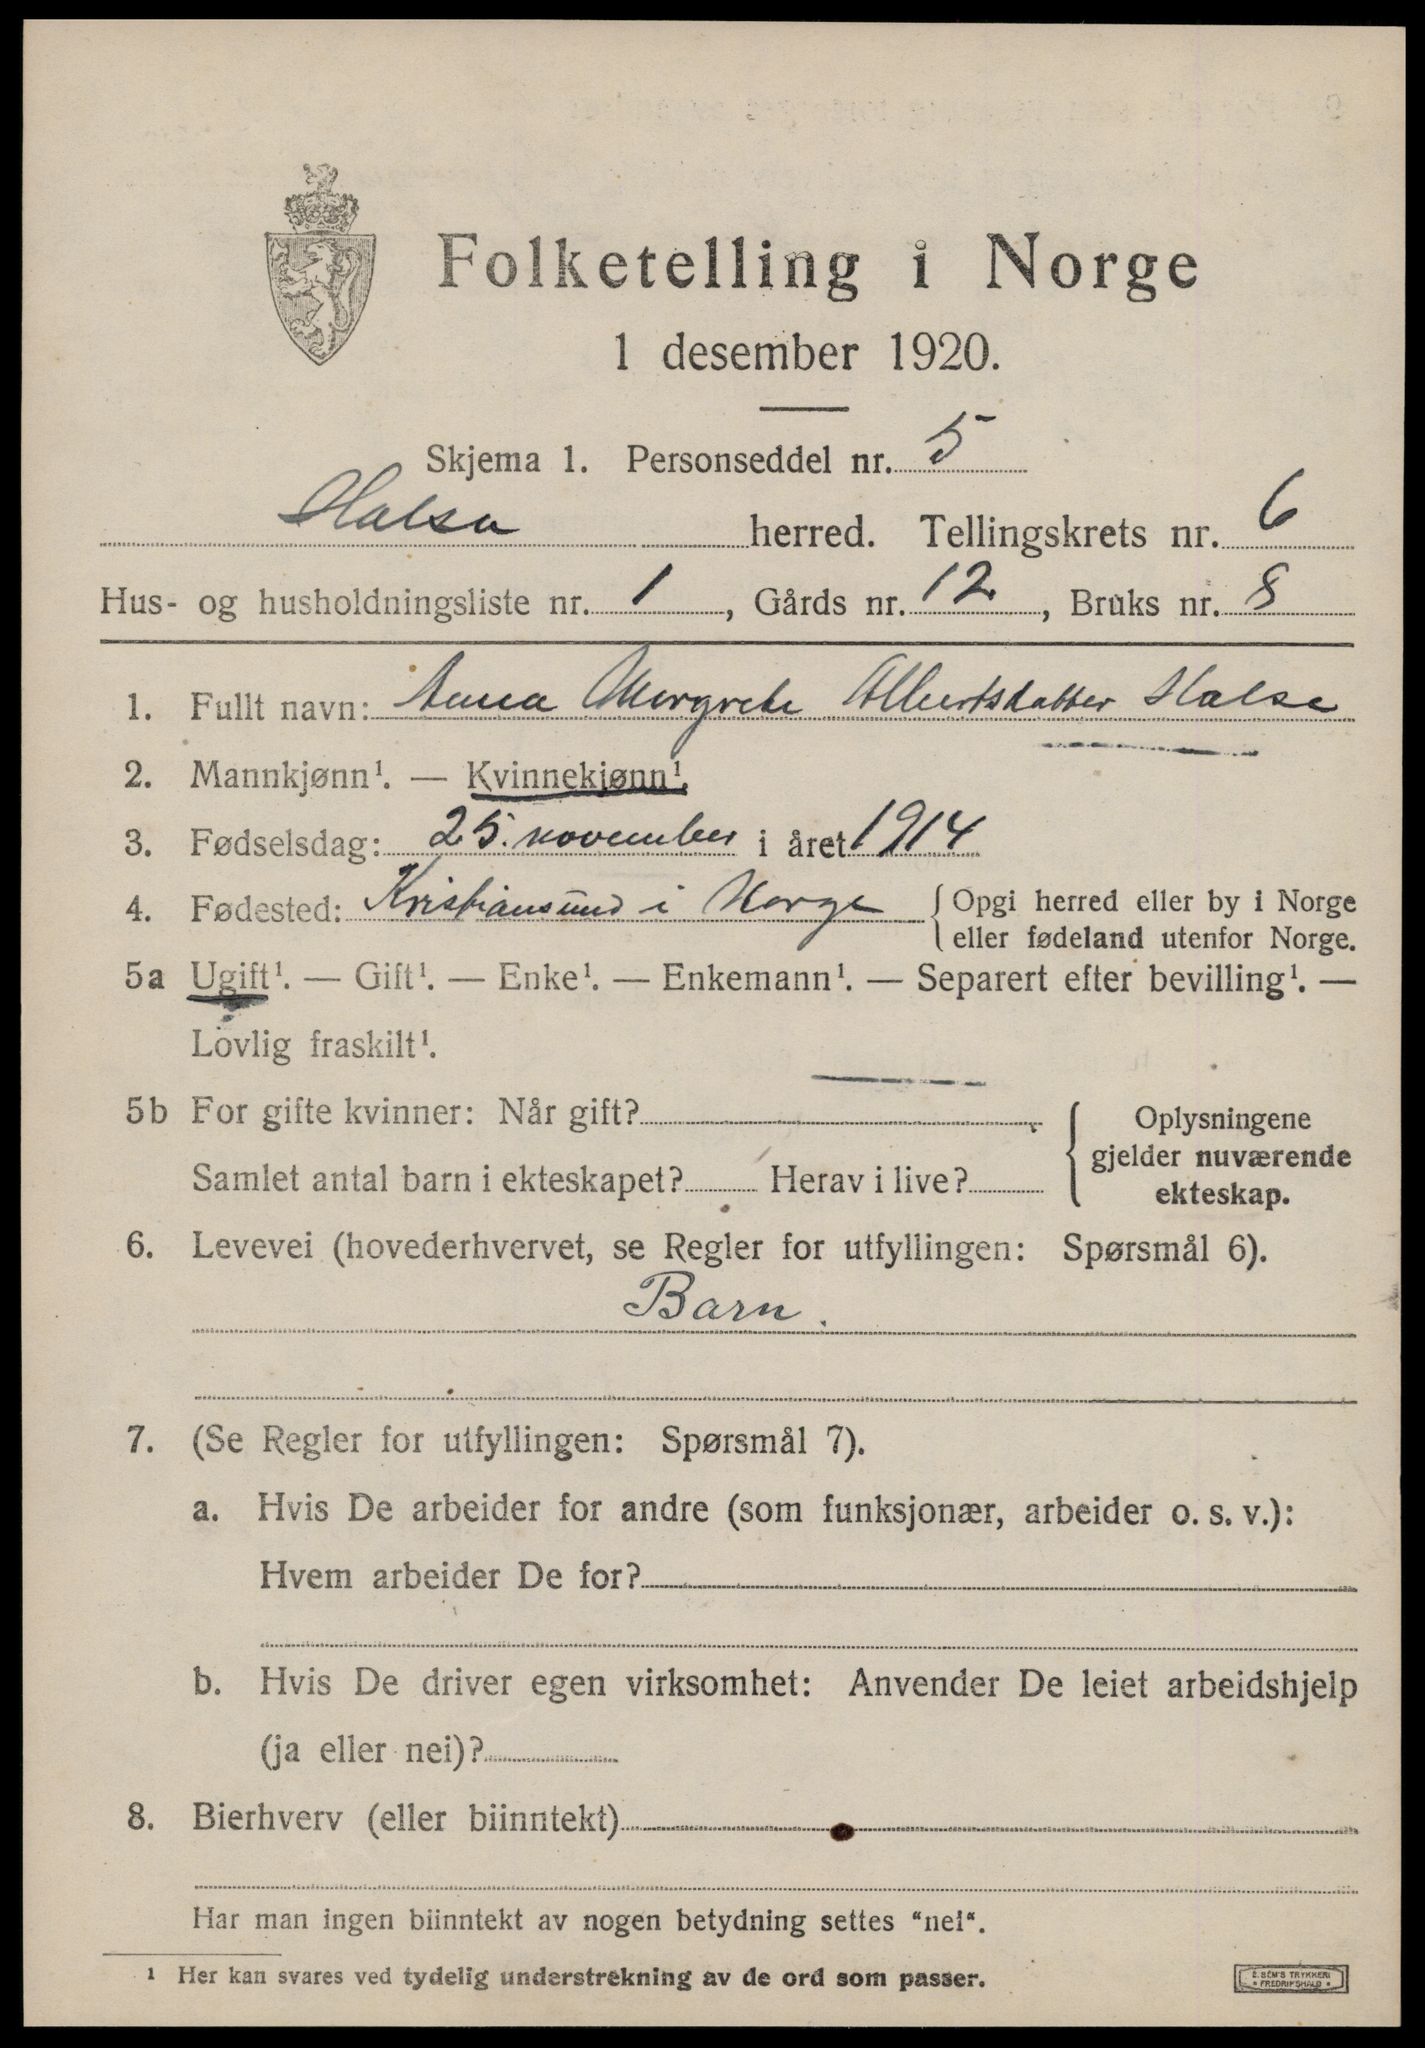 Folketelling i Norge
1 desember 1920.
Skjema 1. Personseddel nr. 5
Halsa herred. Tellingskrets nr. 6
Hus- og husholdningsliste nr. 1, Gårds nr. 12, Bruks nr. 8
1. Fullt navn: Anna Margrete Albertsdatter Halse
2. Mannkjønn¹. — Kvinnekjønn¹.
3. Fødselsdag: 25. november i året 1914
4. Fødested: Kristiansund i Norge { Opgi herred eller by i Norge
eller fødeland utenfor Norge.
5a Ugift¹. — Gift¹. — Enke¹. — Enkemann¹. — Separert efter bevilling¹. —
Lovlig fraskilt¹.
5b For gifte kvinner: Når gift?
Samlet antal barn i ekteskapet? Herav i live?
Oplysningene
gjelder nuværende
ekteskap.
6. Levevei (hovederhvervet, se Regler for utfyllingen: Spørsmål 6).
Barn.
7. (Se Regler for utfyllingen: Spørsmål 7).
a. Hvis De arbeider for andre (som funksjonær, arbeider o. s. v.):
Hvem arbeider De for?
b. Hvis De driver egen virksomhet: Anvender De leiet arbeidshjelp
(ja eller nei)?
8. Bierhverv (eller biinntekt)
Har man ingen biinntekt av nogen betydning settes "nei".
¹ Her kan svares ved tydelig understrekning av de ord som passer.
E. SEM'S TRYKKERI
• FREDRIKSHALD •